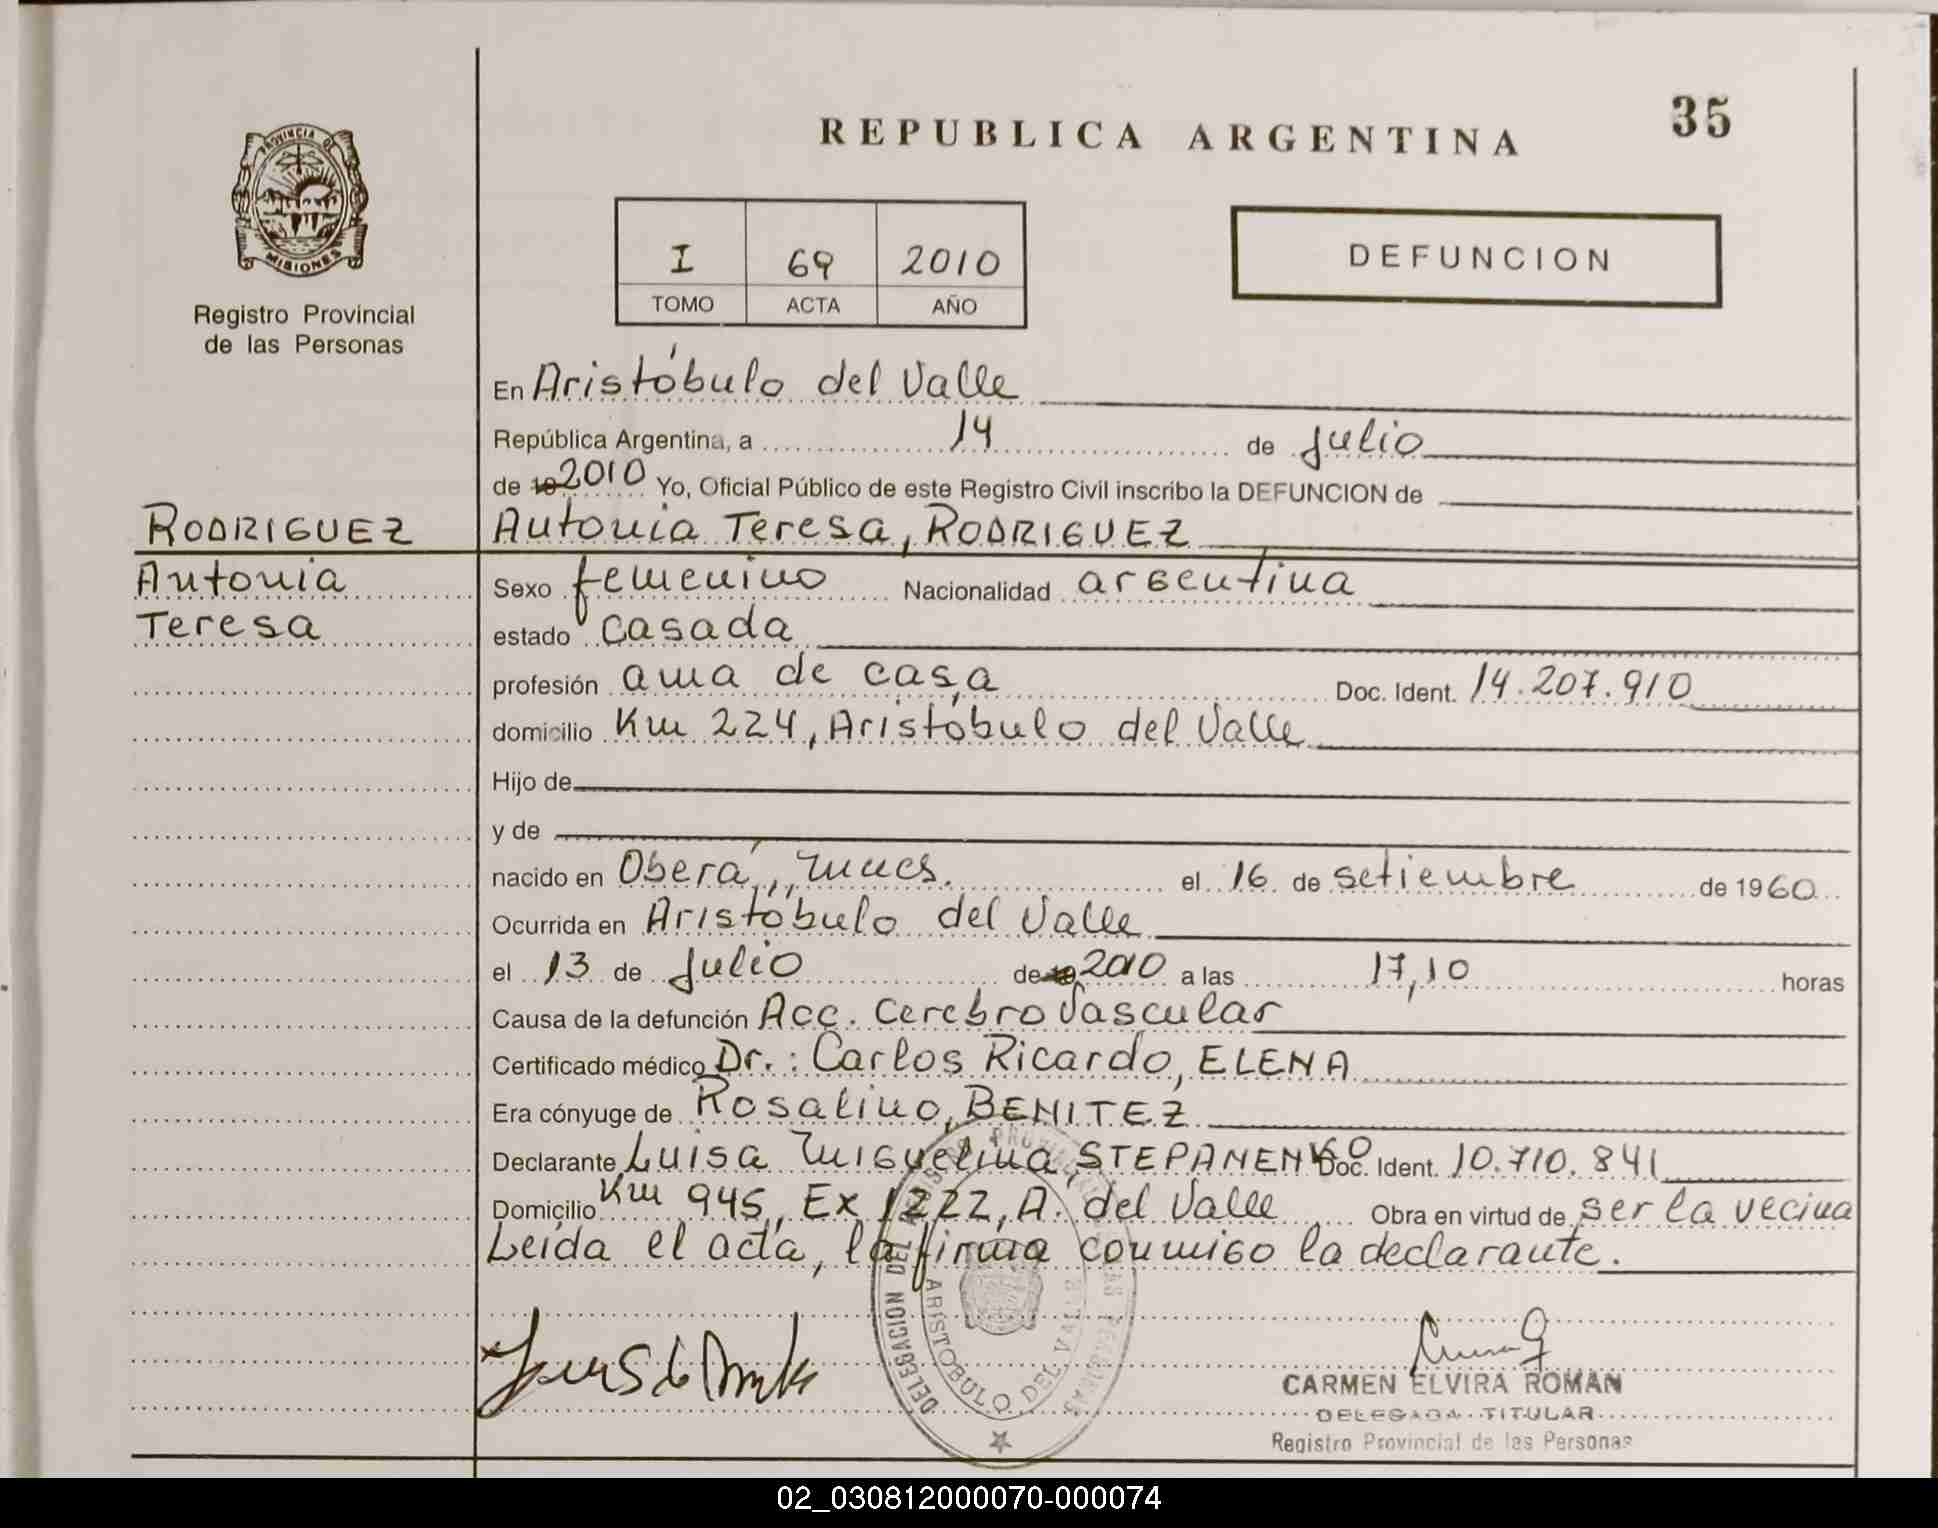 35
REPUBLICA ARGENTINA
PROVINCIA DE
MISIONES
Registro Provincial
de las Personas
I 69 2010
TOMO ACTA AÑO
DEFUNCION
En Aristóbulo del Valle
República Argentina, a 14 de julio
de 19 2010 Yo, Oficial Público de este Registro Civil inscribo la DEFUNCION de
RODRIGUEZ Antonia Teresa, RODRIGUEZ
Antonia Sexo femenino Nacionalidad argentina
Teresa estado casada
profesión ama de casa Doc. Ident. 14.207.910
domicilio Km 224, Aristóbulo del Valle
Hijo de
y de
nacido en Oberá, Mnes. el 16 de setiembre de 1960
Ocurrida en Aristóbulo del Valle
el 13 de Julio de 19 2010 a las 17,10 horas
Causa de la defunción Acc. Cerebro Vascular
Certificado médico Dr.: Carlos Ricardo, ELENA
Era cónyuge de Rosalino, BENITEZ
Declarante Luisa Miguelina, STEPANENKO Doc. Ident. 10.710.841
Domicilio Km 945, Ex 1222, A. del Valle Obra en virtud de ser la vecina
Leída el acta, la firma conmigo la declarante.
DELEGACION DEL
ARISTOBULO DEL VALLE
CARMEN ELVIRA ROMAN
DELEGADA TITULAR
Registro Provincial de las Personas
02_030812000070-000074